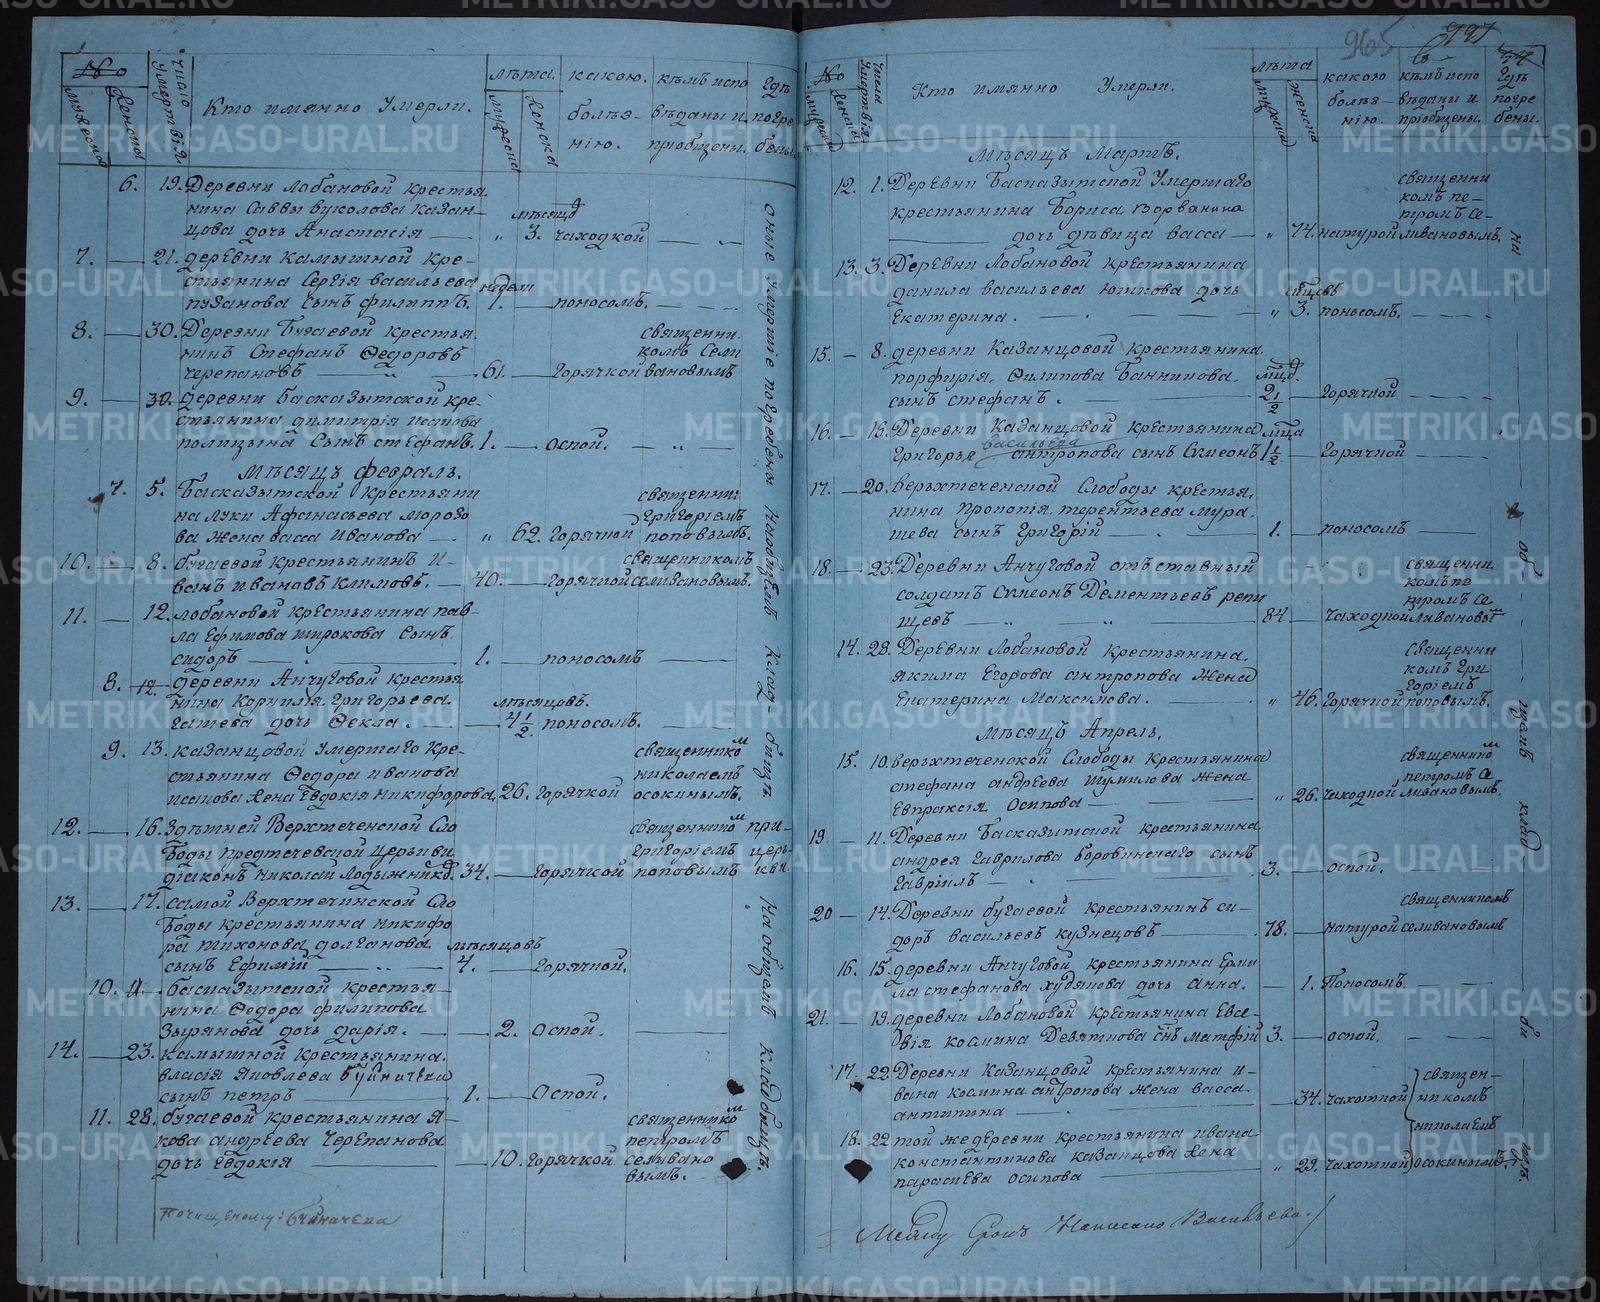 №
мужеска
женска
число умертвія.
Кто имянно умерли.
лѣта.
мужеска
женска
какою.
болѣз-
нію.
кѣмъ испо
вѣданы и
пріобщены.
Гдѣ
погре
бены.
6. 19. Деревни Лобановой крестья
нина Саввы Вуколова Казан-
цова дочь Анастасія — „ мѣсяц 3. чаходкой
7. — 21. деревни Камышной кре-
стьянина Сергія Васильева
Пузанова сынъ Филиппъ. недели 1. — поносомъ.
8. — 30. Деревни Бугаевой крестья
нинъ Стефанъ Федоровъ
Черепановъ — 61. — Горячкой
священни
комъ Сели
вановымъ
9. — 30. Деревни Басказытской кре-
стьянина Димитрія Исакова
Полицына сынъ Стефанъ. 1. — оспой. — „ —
Мѣсяцъ Февраль.
7. 5. Басказытской крестьяни
на Луки Афанасьева Морозо
ва жена Васса Иванова — „ 62. Горячкой
священни
Григоріемъ
Поповымъ.
10. — 8. бугаевой крестьянинъ И-
ванъ Ивановъ Климовъ. — 40. — Горячкой
священникомъ
Селивановымъ.
11. — 12. Лобановой крестьянина Пав-
ла Ефимова Широкова сынъ
Сидоръ — 1. — поносомъ
8. 12. деревни Анчуговой крестья
нина Корнилія Григорьева
Гатева дочь Фекла. — мѣсяцовъ. 4 1/2. поносомъ.
9. 13. Казанцовой умершаго кре-
стьянина Федора Иванова
Исакова жена Евдокія Никифорова, 26. горячкой
священником
Николаемъ
Осокинымъ.
12. — 16. Здѣшней Верхтеченской Сло
боды Предтечевской церькви
діаконъ Николай Лодыжниковъ. 34. — Горячкой
священником
Григоріемъ
Поповымъ
при-
церь-
кви.
13. — 17. самой Верхтечинской Сло
боды крестьянина Никифо
ра Тихонова Долганова
сынъ Ефимій — мѣсяцовъ 4. — Горячкой.
10. 11. басказытской крестья-
нина Федора Филипова
Зырянова дочь Дарія. — 2. Оспой.
14. — 23. камышной крестьянина
Власія Яковлева
сынъ Петръ — 1. — Оспой.
11. 28. бугаевой крестьянина Я-
кова Андреева Черепанова
дочь Евдокія — 10. Горячкой
священнико м
Петромъ
Селивано
вымъ.
Оные умершіе погребены на общемъ кладбищѣ
На общемъ кладбищѣ.
965
997
№
мужска
женска
числа умертвія
Кто имянно умерли.
лѣта
мужеска
женска
какою
болѣз-
нію.
кѣмъ испо
вѣданы и
пріобщены.
Гдѣ
погре
бены.
Мѣсяцъ Мартъ.
12. 1. Деревни Басказытской умершаго
крестьянина Бориса Ворванина
— дочь дѣвица Васса — „ 74. натурой
священни
комъ Пе-
тромъ Се-
ливановымъ.
13. 3. Деревни Лобановой крестьянина
Данила Васильева Юшкова дочь
Екатерина. — мѣсяцевъ „ 3. поносомъ.
15. — 8. деревни Казанцовой крестьянина
Порфирія Филипова Банникова
сынъ Стефанъ. — 2 1/2 — Горячкой
16. — 15. Деревни Казанцовой крестьянина
Васильева
Григорья Антропова сынъ Симеонъ 1 1/2 — Горячкой
17. — 20. Верьхтеченской Слободы крестья,
нина Прокопія Терентьева Мура.
шева сынъ Григорій — 1. — поносомъ
18. — 23. Деревни Анчуговой отъставный
солдатъ Симеонъ Дементьевъ Репи
щевъ — 84. — чаходкой
священни
комъ Пе
тромъ Се
ливановы
14. 28. Деревни Лобановой крестьянина
Якима Егорова Антропова жена
Екатерина Максимова. — „ 46. Горячкой
священни
комъ Гри
горіемъ
Поповымъ.
Мѣсяцъ Апрель.
15. 10. Верьхтеченской Слободы крестьянина
Стефана Андреева Шумилова жена
Евпраксія Осипова — „ 26. чаходкой
священнико м
Петромъ Се
ливановымъ.
19. — 11. Деревни Басказытской крестьянина
Андрея Гаврилова Боровинскаго сынъ
Гавріилъ — 3. — оспой.
20 — 14. Деревни бугаевой крестьянинъ Си-
доръ Васильевъ Кузнецовъ — 78. — натурой
священникомъ
Селивановымъ
16. 15. деревни Анчуговой крестьянина Ерми
ла Стефанова Худякова дочь Анна. — 1. Поносомъ.
21. — 19. деревни Лобановой крестьянина Евсе-
вія Космина Девяткова снъ Матфій 3. — оспой.
17. 22. Деревни Казанцовой крестьянина И-
вана Космина Антропова жена Васса
Антипина — 34. чахоткой
священ-
никомъ
18. 22 той же деревни крестьянина Ивана
Константинова Казанцова жена
Парасиева Осипова — „ 29. чахоткой
Николаемъ
Осокинымъ
на об — щемъ клад — би — щѣ.
Между строкъ написано Васильева.